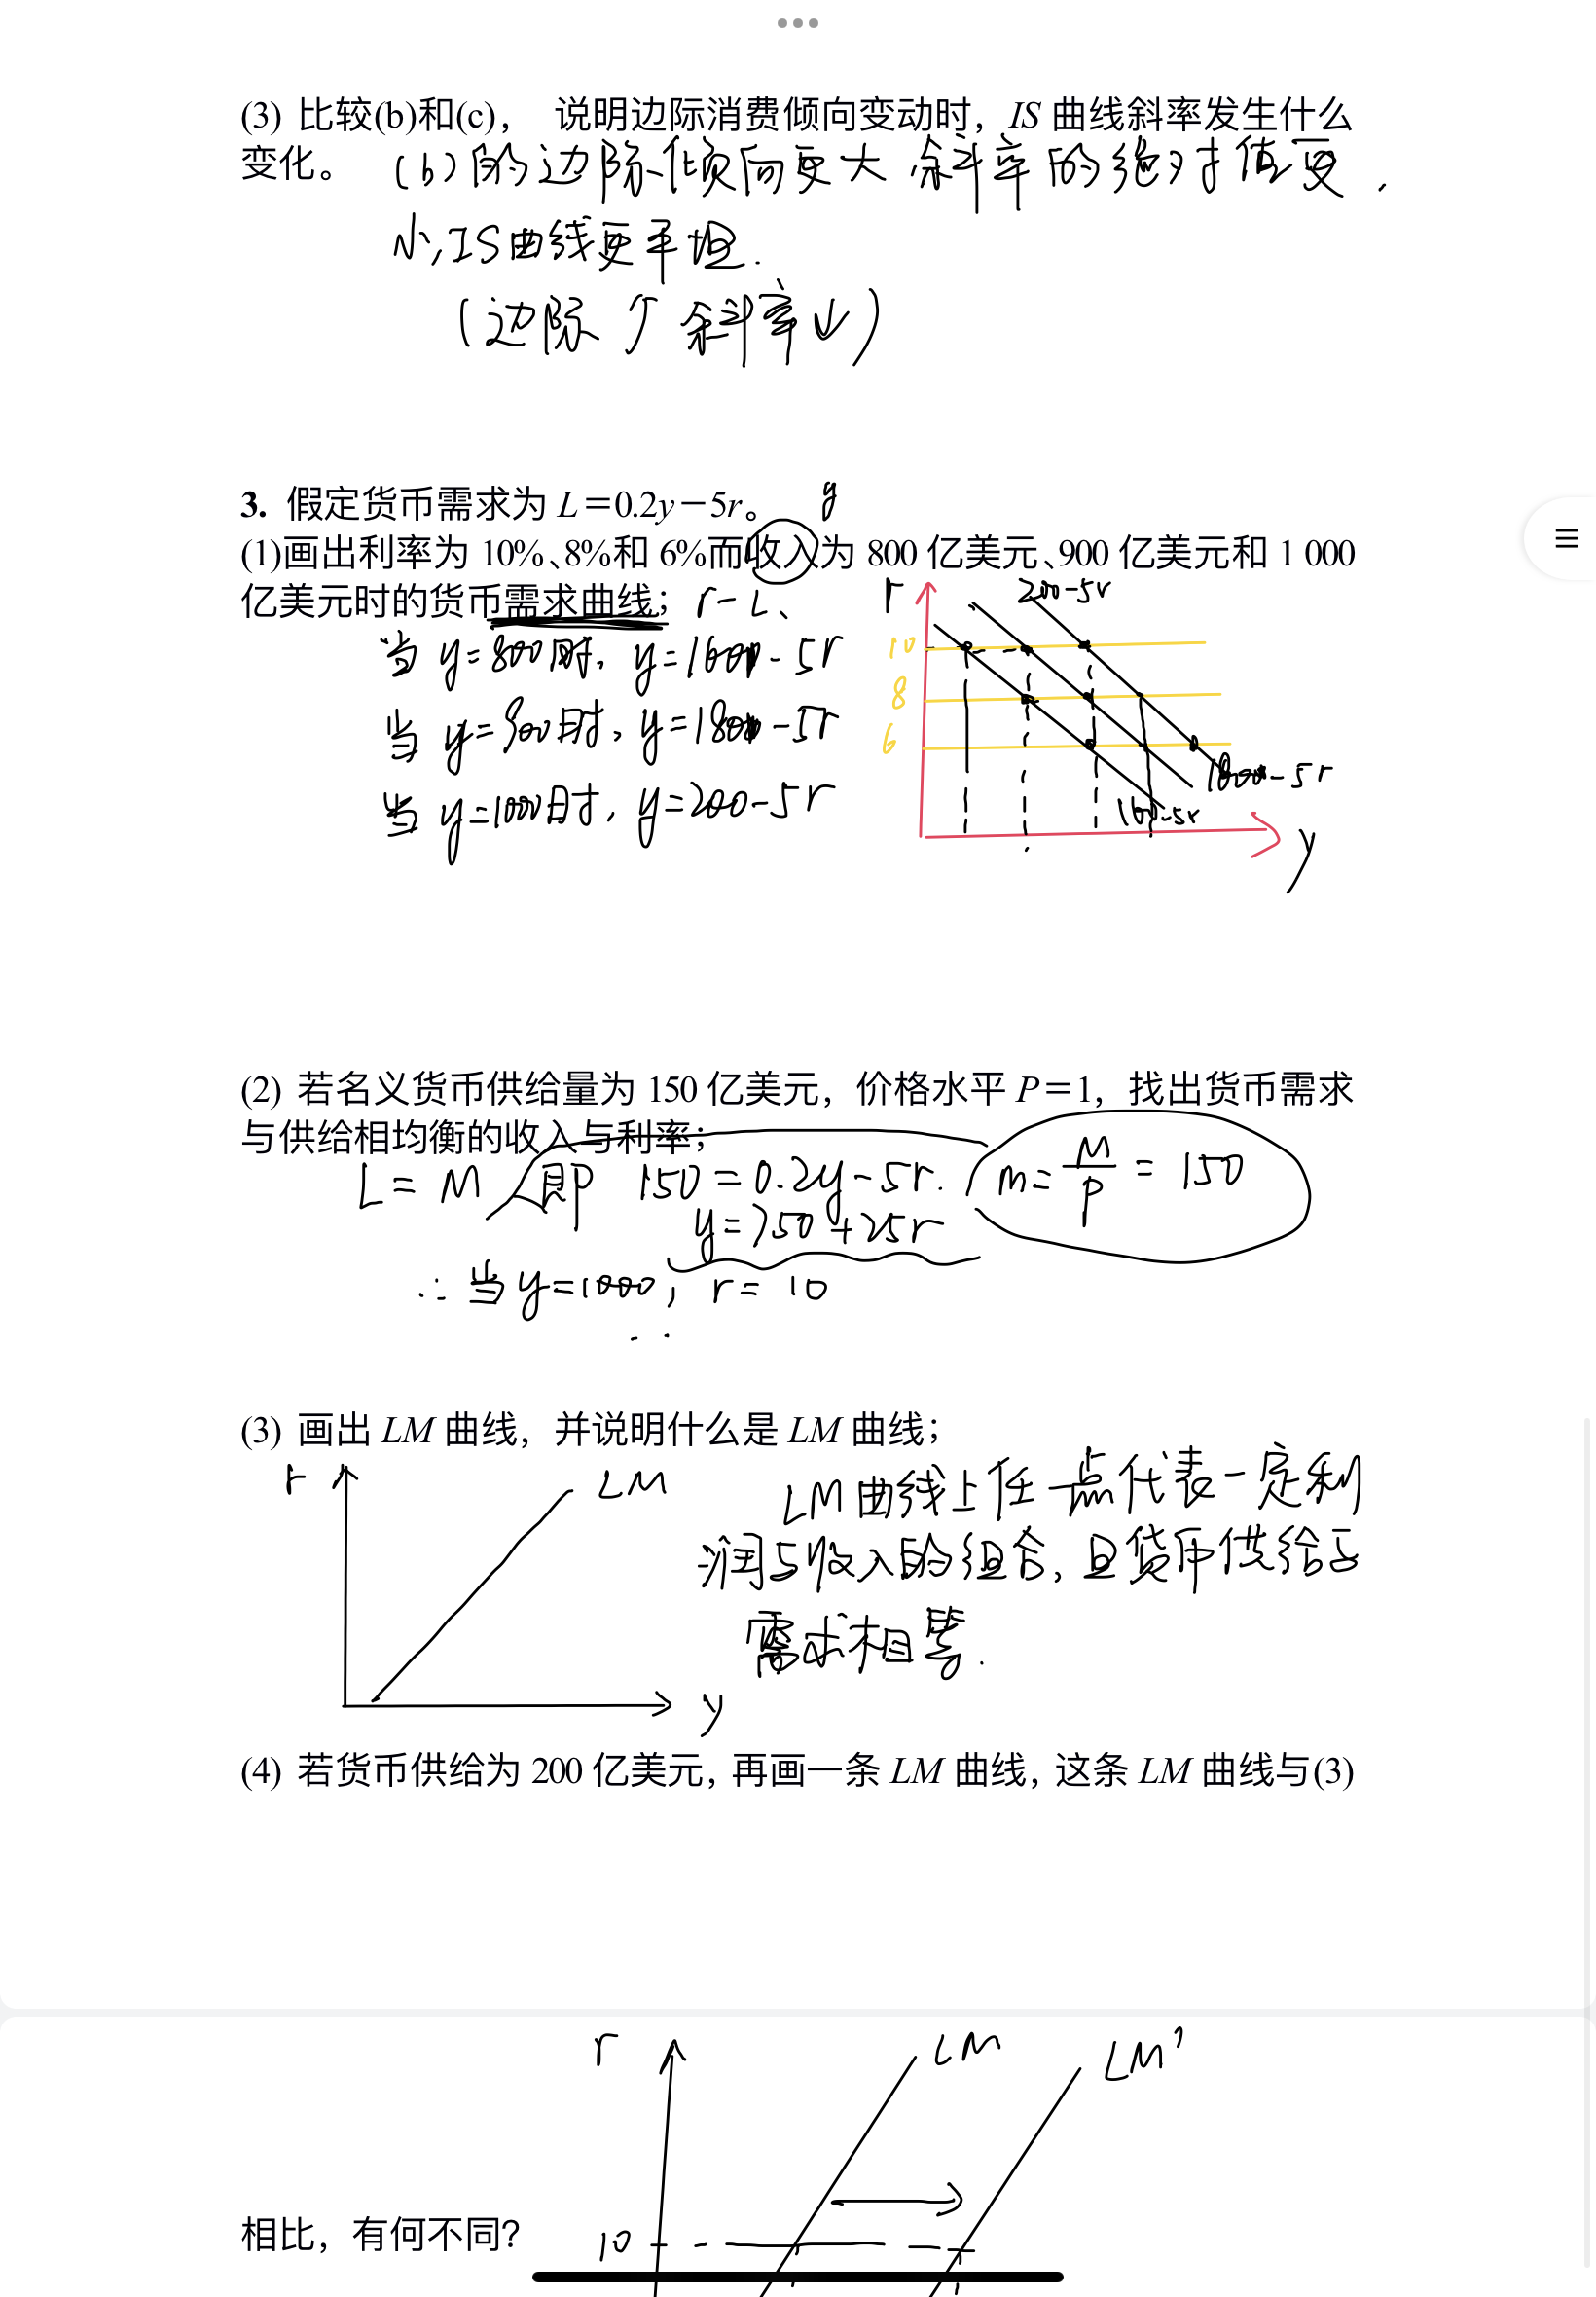 (3) 比较(b)和(c)， 说明边际消费倾向变动时，IS 曲线斜率发生什么
变化。 (b)的边际倾向更大 余斜率的绝对值更
小,IS曲线更平坦.
(边际↑ 余斜率↓)
3. 假定货币需求为 L＝0.2y－5r。 y
(1)画出利率为 10%、8%和 6%而收入为 800 亿美元、900 亿美元和 1 000
亿美元时的货币需求曲线； r-L、
当 y=800时, y=160-5r
当 y=900时, y=180-5r
当 y=1000时, y=200-5r
r
200-5r
10
8
6
180-5r
160-5r
y
(2) 若名义货币供给量为 150 亿美元，价格水平 P＝1，找出货币需求
与供给相均衡的收入与利率；
L=M 即 150=0.2y-5r. m=M/P=150
y=750+25r
∴当y=1000, r=10
(3) 画出 LM 曲线，并说明什么是 LM 曲线；
r
LM
LM曲线上任一点代表一定利
润与收入的组合,且货币供给与
需求相等.
y
(4) 若货币供给为 200 亿美元，再画一条 LM 曲线，这条 LM 曲线与(3)
r
LM
LM'
相比，有何不同？
10